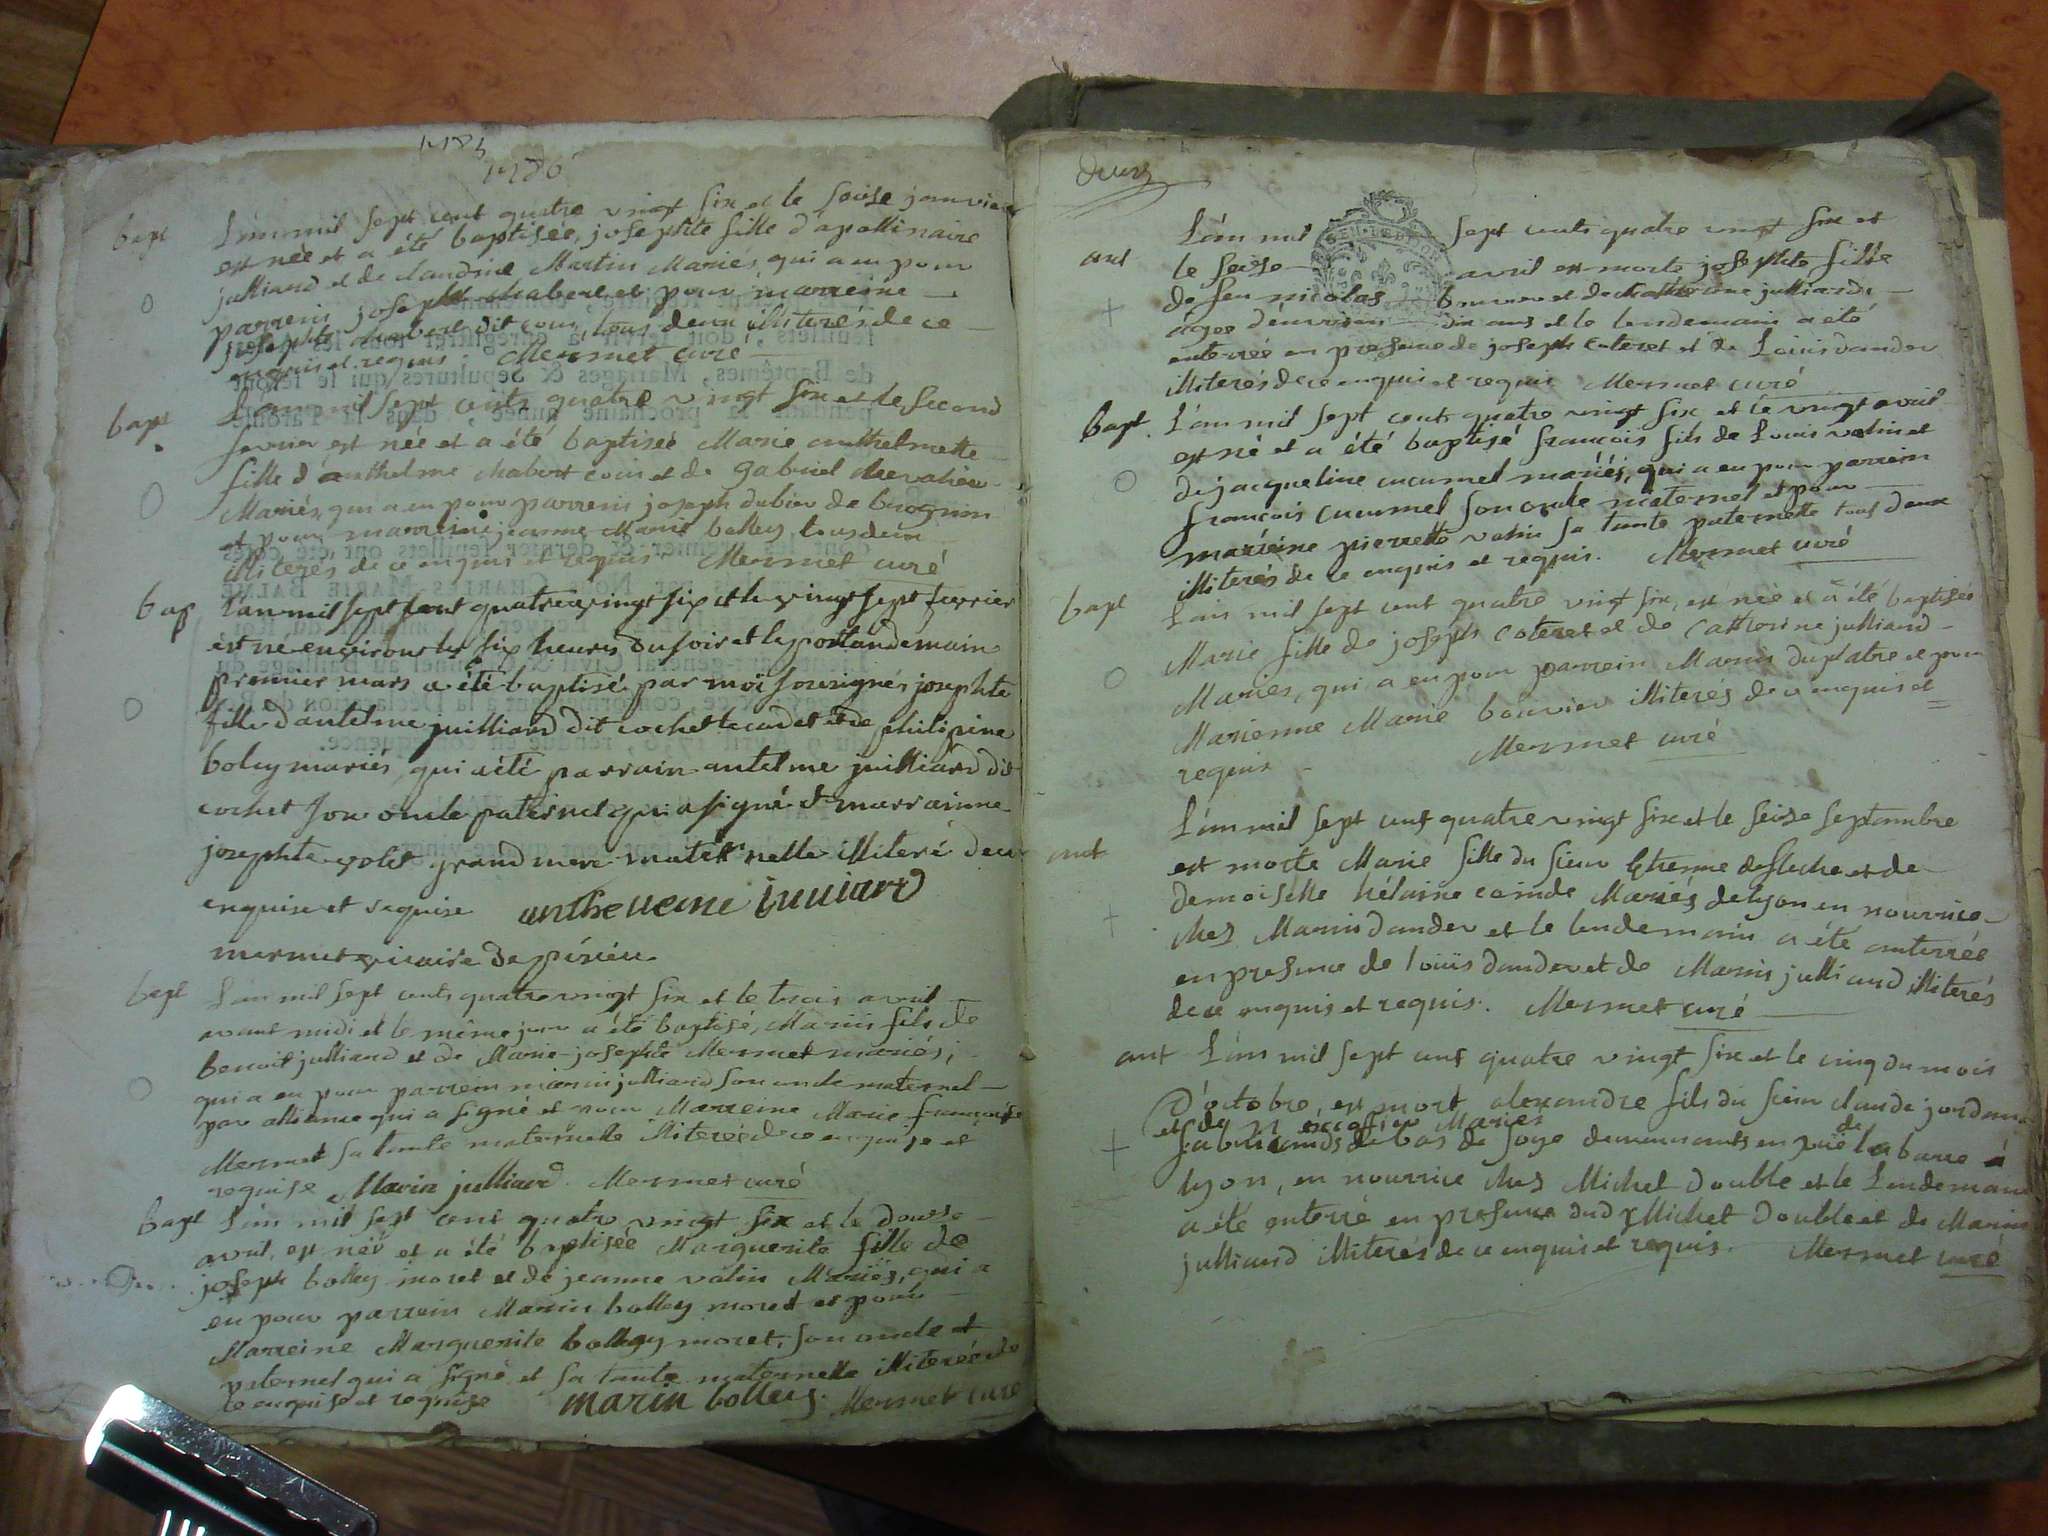 1785
1786
bapt
L'an mil sept cent quatre vingt six et le seise janvier
est née et a été baptisée, josephte fille d'apollinaire
julliard et de claudine Martin Mariés, qui a eu pour
parrein joseph chabert et pour marreine
josephte chabert dit couis, tous deux illiterés de ce
enquis et requis. Mermet curé
bapt
L'an mil sept cents quatre vingt six et le second
fevrier est née et a été baptisée Marie anthelmette
fille d'anthelme chabert couis et de gabriel chevalier
Mariés, qui a eu pour parrein joseph dubier de brognin
et pour marreine jeanne Marie bolley tous deux
illiterés de ce enquis et requis Mermet curé
bap
L'an mil sept cent quatre vingt six et le vingt sept fevrier
est né environ les six heures du soir et le postlandemain
premier mars a été baptisé par moi sousigné, josephte
fille d'antelme juilliard dit cochet le cadet et de philipine
boley mariés, qui a été parrain antelme juilliard dit
cochet son oncle paternel qui a signé et marrainne
josephte volet grand mere maternelle illiteré de ce
enquise et requise antheleme iulliard
mermet vicaire de
bapt
L'an mil sept cents quatre vingt six et le trois avril
avant midi et le même jour a été baptisé, Marin fils de
benoit julliard et de Marie josephte Mermet mariés,
qui a eu pour parrein marin julliard son oncle maternel
par alliance qui a signé et pour Marreine Marie françoise
Mermet sa tante maternelle illiterée de ce enquise et
requise Marin julliard. Mermet curé
bapt
L'an mil sept cent quatre vingt six et le douse
avril, est née et a été baptisée Marguerite fille de
joseph bolley moret et de jeanne valin Mariés, qui a
eu pour parrein Marin bolley moret et pour
Marreine Marguerite bolley moret, son oncle et
paternel qui a signé et sa tante maternelle illiterée de
ce enquise et requise marin bolley. Mermet curé
deux
ant
L'an mil sept cents quatre vingt six et
le seise avril est morte josephte fille
de feu nicolas brunier et de catherine julliard,
agée d'environ dix ans et le lendemain a été
enterrée en presence de joseph coteret et de Louis dander
illiterés de ce enquis et requis Mermet curé
Bapt.
L'an mil sept cent quatre vingt six et le vingt avril
est né et a été baptisé françois fils de Louis valin et
de jacqueline cucumel mariés, qui a eu pour parrein
françois cucumel son oncle maternel et pour
marreine pierrette valin sa tante paternelle tous deux
illiterés de ce enquis et requis. Mermet curé
bapt
L'an mil sept cent quatre vingt six, est née et a été baptisée
Marie fille de joseph coteret et de Catherine julliard
Mariés, qui a eu pour parrein Marin duplatre et pour
Marienne Marie bouvier illiterés de ce enquis et
requis Mermet curé
ant
L'an mil sept cent quatre vingt six et le seise septembre
est morte Marie fille du sieur Etienne defleche et de
demoiselle hélaine coinde Mariés de lyon en nourrice
chez Marin dander et le lendemain a été enterrée
en presence de loüis dander et de Marin julliard illiterés
de ce enquis et requis. Mermet curé
ant
L'an mil sept cent quatre vingt six et le cinq du mois
d'octobre, est mort alexandre fils du sieur claude jordan
et de N excoffier Mariés
fabricants de bas de soye demeurants en ruë de la barre à
lyon, en nourrice chez Michel Double et le Lendemain
a été enterré en presence dud Michel Double et de Marin
julliard illiterés de ce enquis et requis. Mermet curé